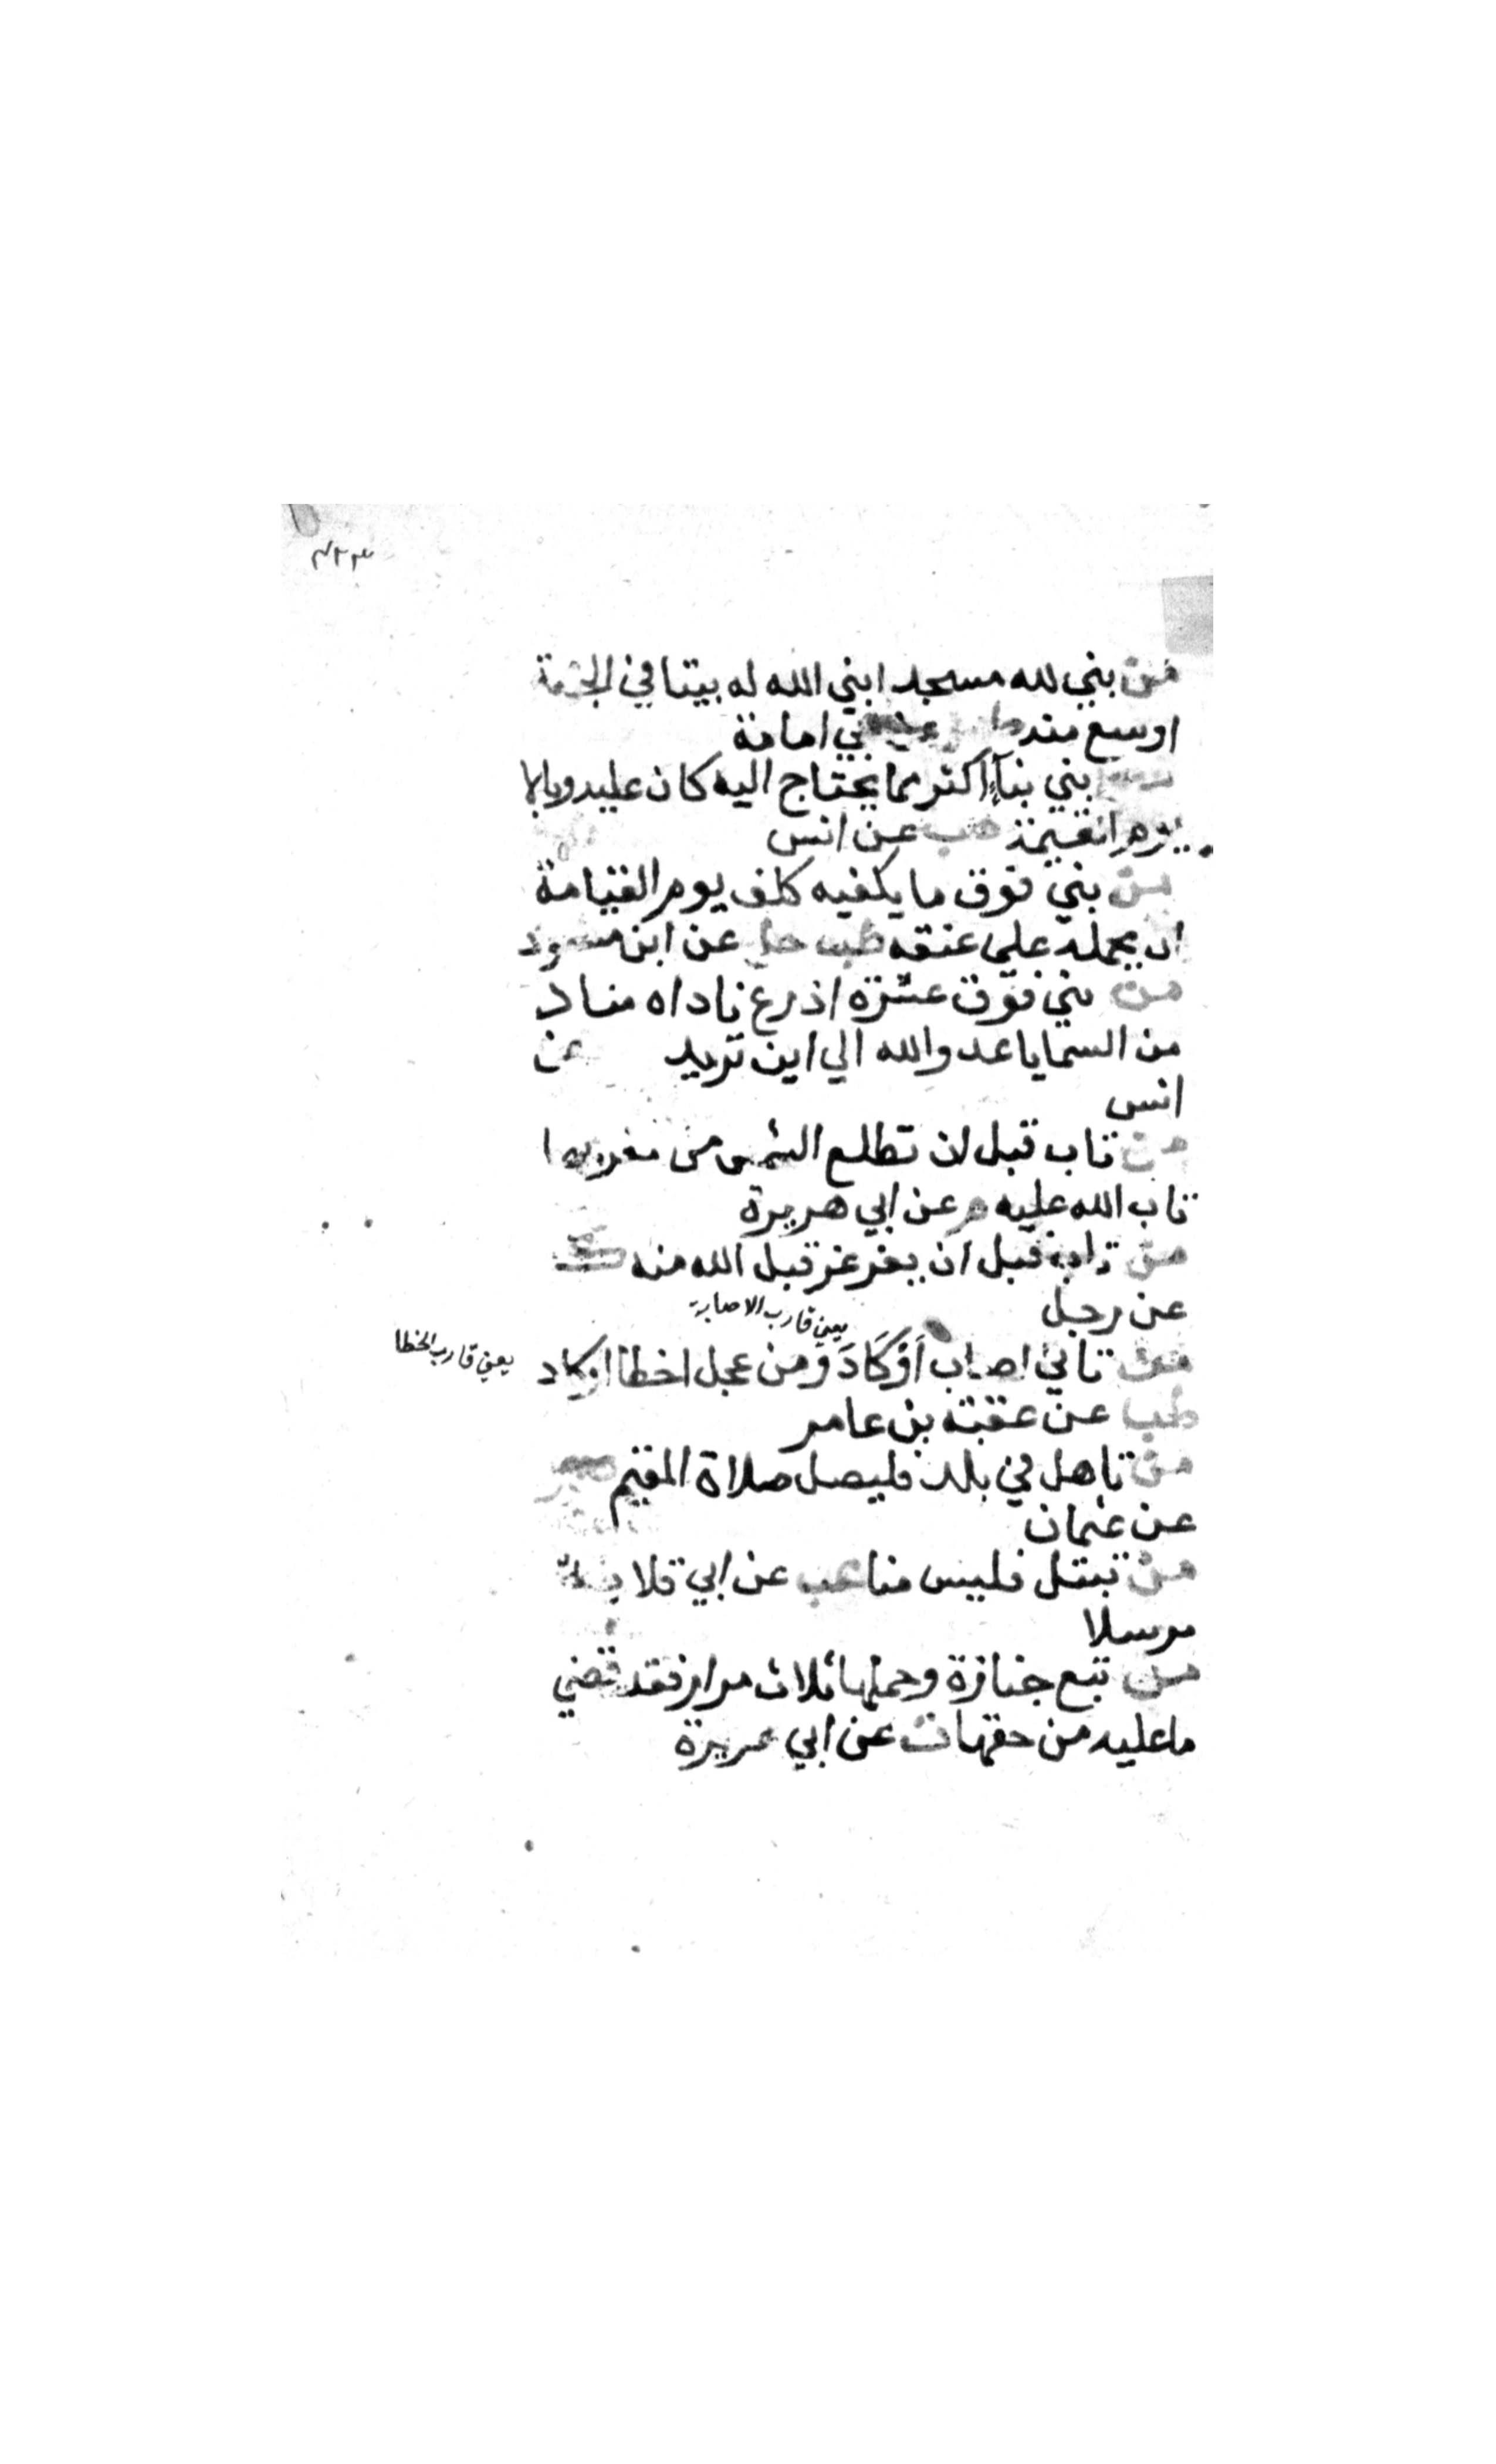 ٤٢٣
من بني لله مسجدا بني الله له بيتا في الجنة
اوسع منه عن ابي امامة
بني بنآءً اكثر مما يحتاج اليه كان عليه وبالا
يوم القيمة هب عن انس
من بني فوق ما يكفيه كلف يوم القيامة
ان يحمله علي عنقه طب حل عن ابن مسعود
من بني فوق عشرة اذرع ناداه مناد
من السما يا عدو الله الي اين تريد عن
انس
من تاب قبل ان تطلع الشمس من مغربها
تاب الله عليه م عن ابي هريرة
من تاب قبل ان يغرغر قبل الله منه ك
عن رجل
يعني قارب الاصابة
من تاني اصاب اَوْكَادَ وَمن عجل اخطا اوكاد
يعني قارب الخطا
طب عن عقبة بن عامر
من تاهل في بلد فليصل صلاة المقيم
عن عثمان
من تبتل فليس منا عب عن ابي قلابة
مرسلا
من تبع جنازة وحملها ثلاث مرار فقد قضي
ما عليه من حقها ت عن ابي هريرة